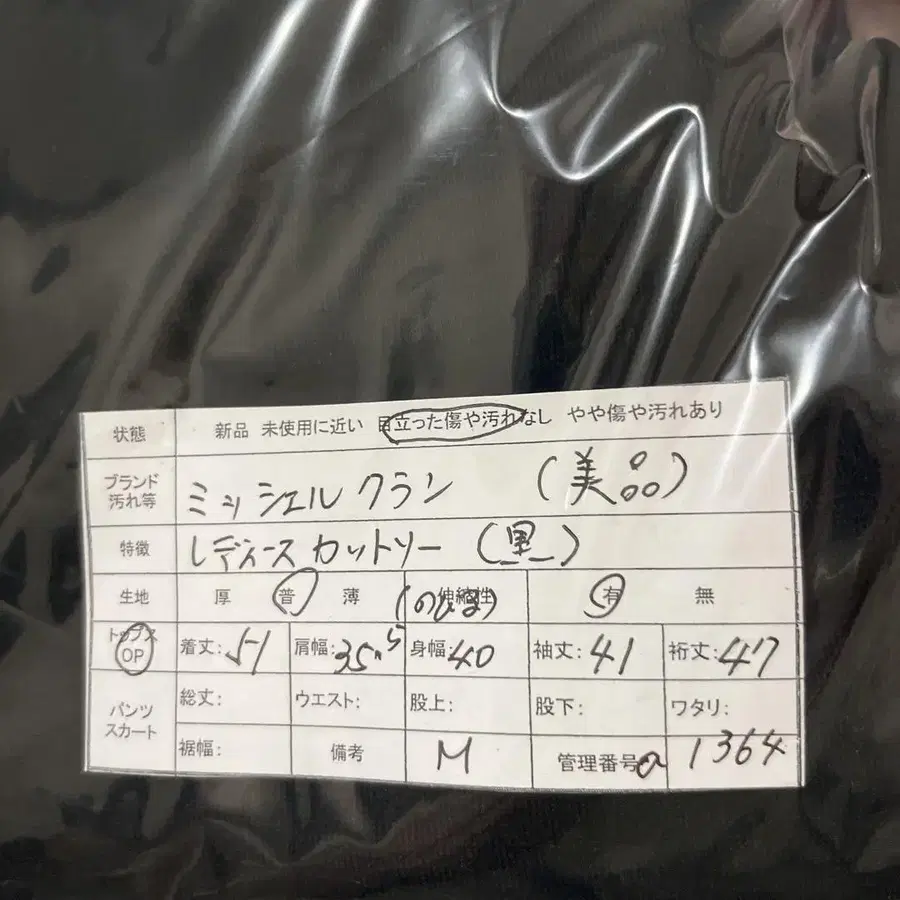 状態 新品 未使用に近い 目立った傷や汚れなし やや傷や汚れあり
ブランド 汚れ等 ミッシェルクラン (美品)
特徴 レディースカットソー (黒)
生地 厚 普 薄 伸縮性 有 無
トップス OP 着丈:51 肩幅:35.5 身幅:40 袖丈:41 裄丈:47
パンツ スカート 総丈: ウエスト: 股上: 股下: ワタリ:
裾幅: 備考 M 管理番号a 1364